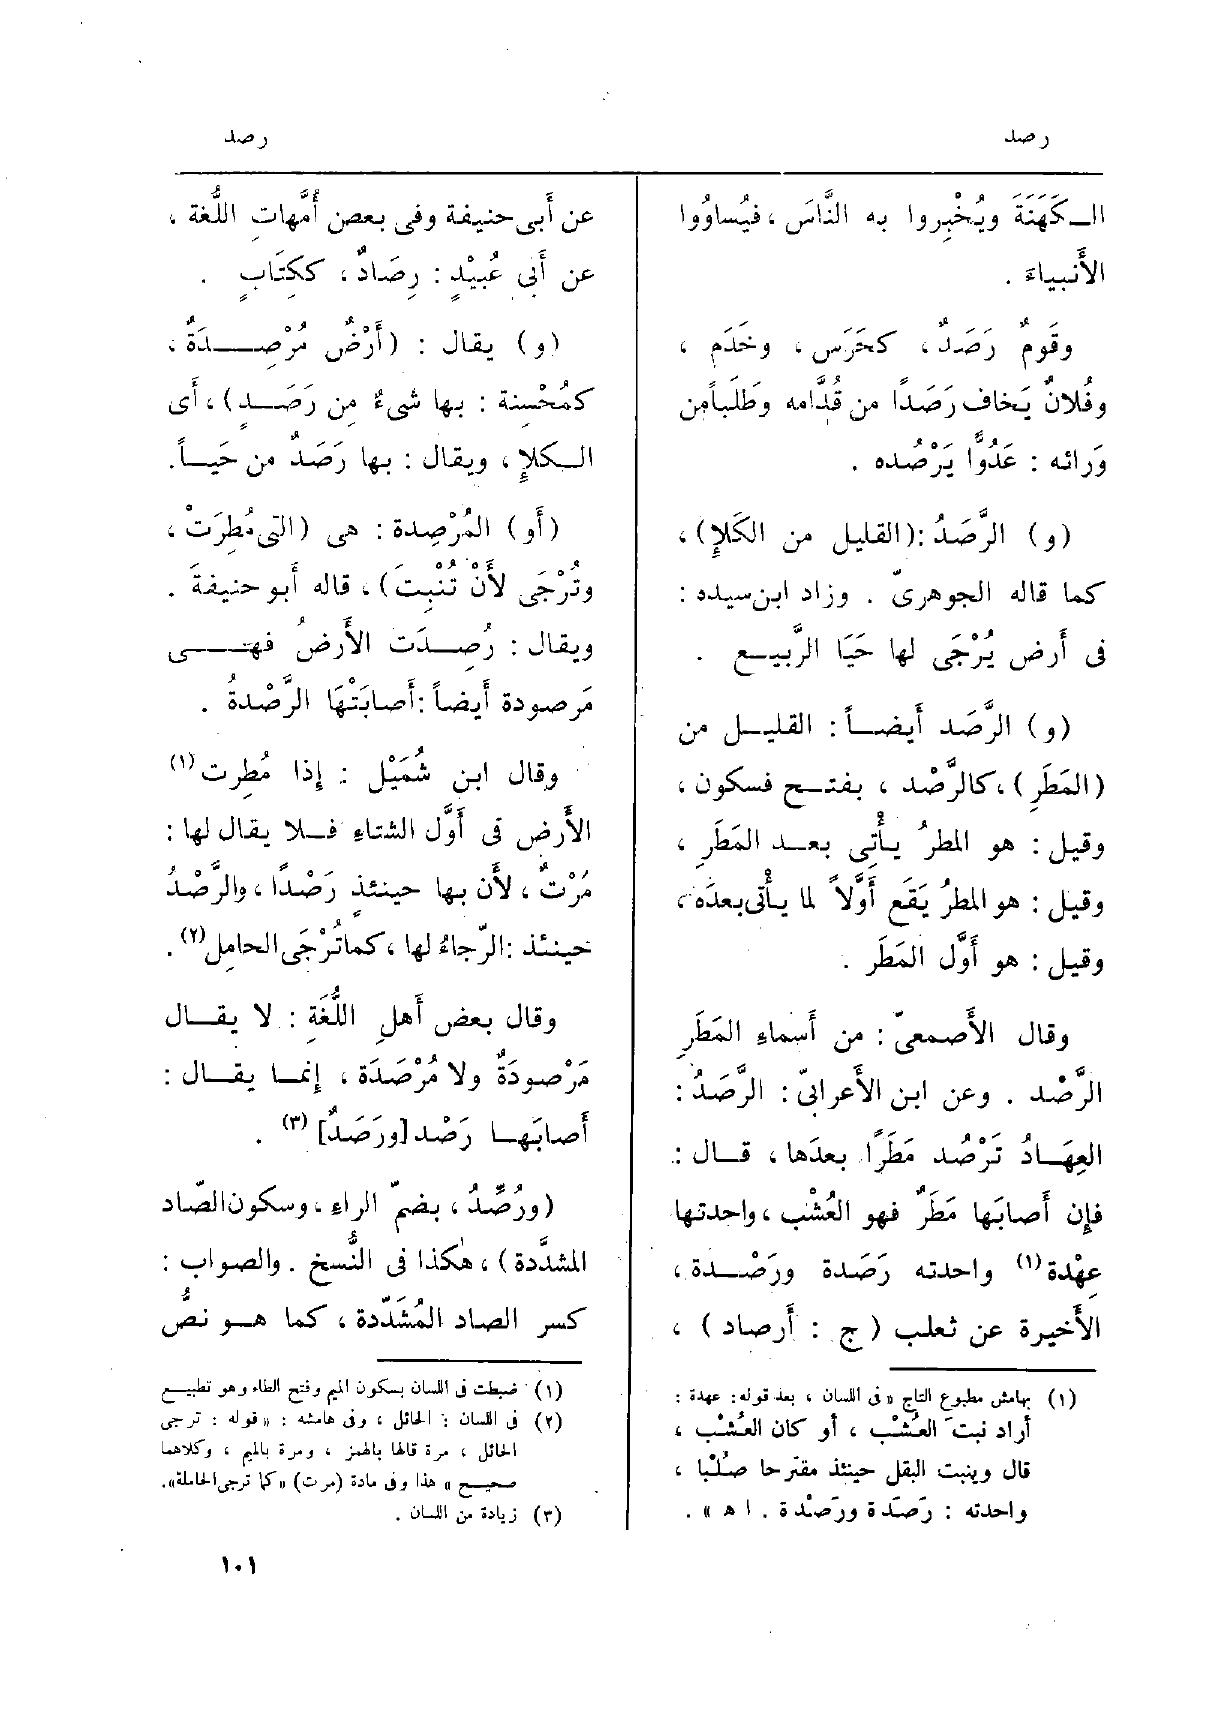 رصد
رصد
الكَهَنَةَ ويُخْبِروا به النَّاسَ ، فيُساوُوا
الأَنبياءَ .
وقَومٌ رَصَدٌ ، كحَرَس ، وخَدَم ،
وفُلانٌ يَخافُ رَصَدًا من قُدَّامه وطَلَباً من
وَرائه : عَدُوًّا يَرْصُده .
(و) الرَّصَدُ : (القليل من الكَلإِ) ،
كما قاله الجوهرىّ . وزاد ابن سيده :
فى أَرض يُرْجَى لها حَيَا الرَّبيع .
(و) الرَّصَد أَيضاً : القليل من
(المَطَرِ) ، كالرَّصْد ، بفتح فسكون ،
وقيل : هو المطرُ يأْتى بعد المَطَرِ ،
وقيل : هو المطرُ يَقَع أَوَّلاً لما يأْتى بعدَه ،
وقيل : هو أَوَّل المَطَر .
وقال الأَصمعىّ : من أَسماءِ المَطَرِ
الرَّصْد . وعن ابن الأَعرابىّ : الرَّصَدُ :
العِهَادُ تَرْصُد مَطَرًا بعدَها ، قال :
فإِن أَصابَها مَطَرٌ فهو العُشْب ، واحدتها
عِهْدة (١) واحدته رَصَدة ورَصْدة ،
الأَخيرة عن ثعلب (ج : أَرصاد) ،
(١) بهامش مطبوع التاج « فى اللسان ، بعد قوله : عهدة :
أراد نبتَ العُشْب ، أو كان العُشْب ،
قال وينبت البقل حينئذ مقترحا صُلْبا ،
واحدته : رَصَدة ورَصْدة . ا ه » .
عن أَبى حنيفة وفى بعض أُمَّهاتِ اللُّغة ،
عن أَبى عُبيْدٍ : رِصَادٌ ، ككِتَابٍ .
(و) يقال : (أَرْضٌ مُرْصِدَةٌ ،
كمُحْسِنة : بها شىءٌ مِن رَصَدٍ) ، أَى
الكلإِ ، ويقال : بها رَصَدٌ من حَياً .
(أَو) المُرْصِدة : هى (التى مُطِرَتْ ،
وتُرْجَى لأَنْ تُنْبِتَ) ، قاله أَبو حنيفةَ .
ويقال : رُصِدَت الأَرضُ فهى
مَرصودة أَيضاً : أَصابَتْهَا الرَّصْدةُ .
وقال ابن شُمَيْل : إِذا مُطِرت (١)
الأَرض فى أَوَّل الشتاءِ فلا يقال لها :
مُرْتٌ ، لأَن بها حينئذٍ رَصْدًا ، والرَّصْدُ
حينئذ : الرَّجاءُ لها ، كما تُرْجَى الحامل (٢) .
وقال بعض أَهلِ اللُّغَةِ : لا يقال
مَرْصودَةٌ ولا مُرْصَدَة ، إِنما يقال :
أَصابَها رَصْد [ورَصَدٌ] (٣) .
(ورُصِّدُ ، بضمّ الراءِ ، وسكون الصّاد
المشدَّدة) ، هٰكذا فى النُّسخ . والصواب :
كسر الصاد المُشَدّدة ، كما هو نصُّ
(١) ضبطت فى اللسان بسكون الميم وفتح الطاء وهو تطبيع
(٢) فى اللسان : الحائل ، وفى هامشه : « قوله : ترجى
الحائل ، مرة قالها بالهمز ، ومرة بالميم ، وكلاهما
صحيح » هذا وفى مادة (مرت) « كما ترجى الحاملة » .
(٣) زيادة من اللسان .
١٠١